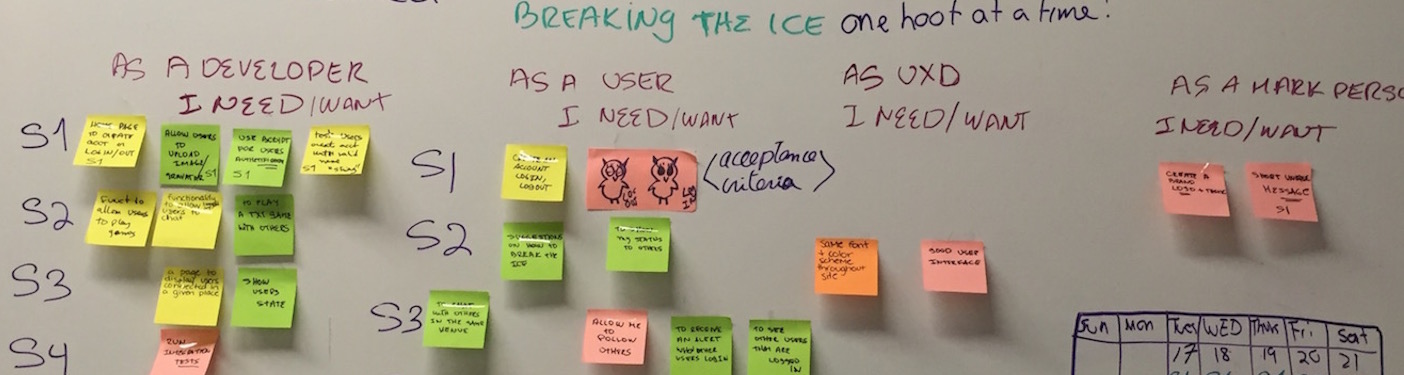 BREAKING THE ICE one hoot at a time!
AS A DEVELOPER
I NEED/WANT
S1
HOME PAGE
TO CREATE
ACCT OR
LOGIN/OUT
S1
ALLOW USERS
TO
UPLOAD
IMAGE/
GRAVATAR
S1
FOR USERS
S1
test users
S1
S2
allow users
to play
games
functionality
to allow
users to
chat
TO PLAY
A TXT GAME
WITH OTHERS
S3
a page to
display users
connected in
a given place
SHOW
USERS
STATE
S4
RUN
INTEGRATION
TESTS
AS A USER
I NEED/WANT
S1
CREATE AN
ACCOUNT
LOGIN,
LOGOUT
LOG
OUT
LOG
IN
<acceptance
criteria>
S2
SUGGESTIONS
ON HOW TO
BREAK THE
ICE
MY STATUS
TO OTHERS
S3
WITH OTHERS
IN THE SAME
VENUE
ALLOW ME
TO
FOLLOW
OTHERS
TO RECEIVE
AN ALERT
WHEN OTHER
USERS LOGIN
TO SEE
OTHER USERS
THAT ARE
LOGGED
IN
AS UXD
I NEED/WANT
Same font
+ color
scheme
throughout
site
GOOD USER
INTERFACE
AS A MARK PERSO
I NEED/WANT
CREATE A
BRAND
LOGO +
SHORT
MESSAGE
S1
Sun Mon Tues WED Thurs Fri Sat
17 18 19 20 21